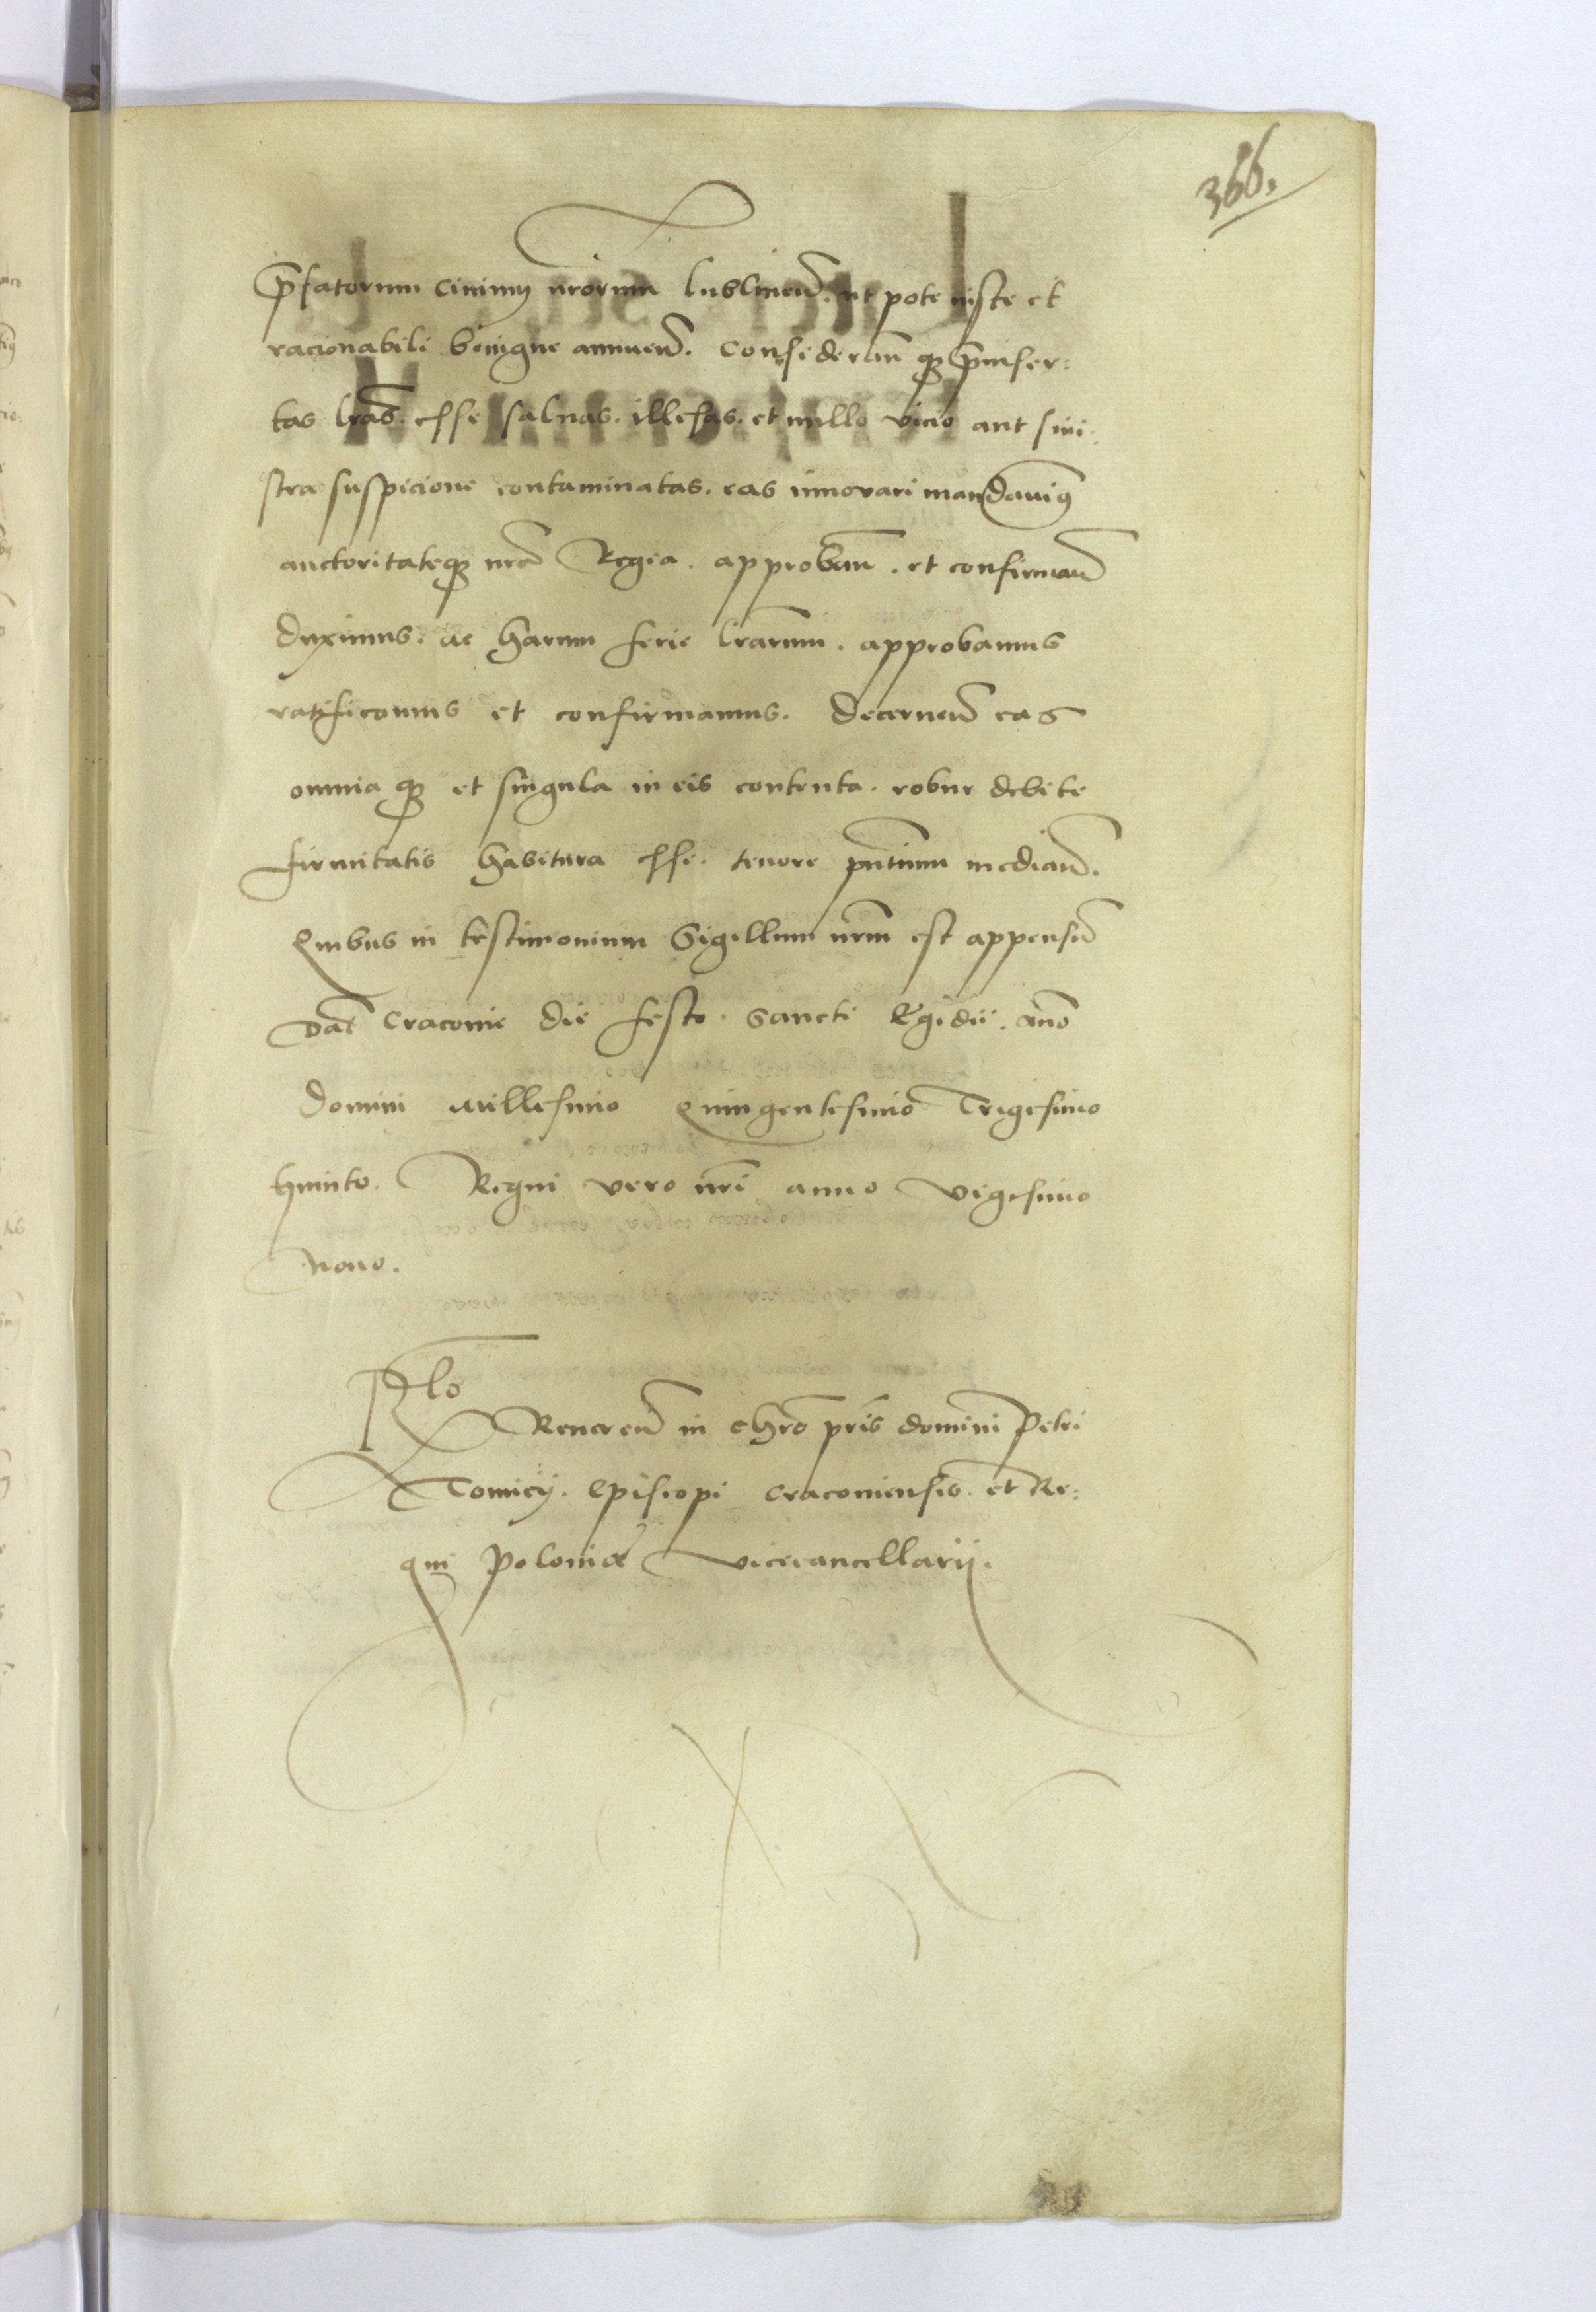 366.
p̄fatorum civium nr̄orum lublinen̄. ut pote iuste et
racionabili benigne annuen̄. Consideran̄ q̨ p̄inser:
tas lr̄as. esse salvas. illesas. et nullo vicio aut sini:
stra suspicione contaminatas. eas innovari mandavim9
auctoritateq̨ nr̄a Regia. approban̄. et confirman̄
duximus. ac harum serie lr̄arum. approbamus
ratificamus et confirmamus. Decernen̄ eas
omnia q̨ et singula in eis contenta. robur debite
firmitatis habitura esse. tenore pn̄tium median̄.
Quibus in testimonium Sigillum nr̄m est appensū
Dat̄ Cracovie die festo. Sancti Egidii. an̄o
Domini Millesimo Quingentesimo Trigesimo
Quinto. Regni vero nr̄i anno vigesimo
nono.
Rlō
Reveren̄ in chr̄o pr̄is domini Petri
Tomicÿ. Episcopi Cracoviensis. et Re:
gni Poloniæ vicecancellarii.